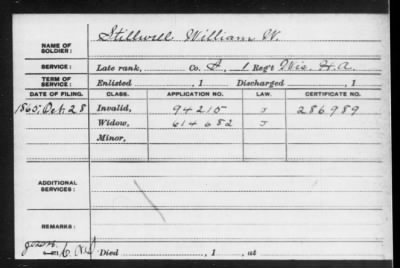 NAME OF SOLDIER: Stillwell William W.
SERVICE: Late rank, Co. 1 Reg't Wis. H. A.
TERM OF SERVICE: Enlisted , 1 Discharged , 1
DATE OF FILING. CLASS. APPLICATION NO. LAW. CERTIFICATE NO.
1865, Oct. 28 Invalid, 94215 J 286989
Widow, 614682 J
Minor,
ADDITIONAL SERVICES:
REMARKS:
Died , 1 , at